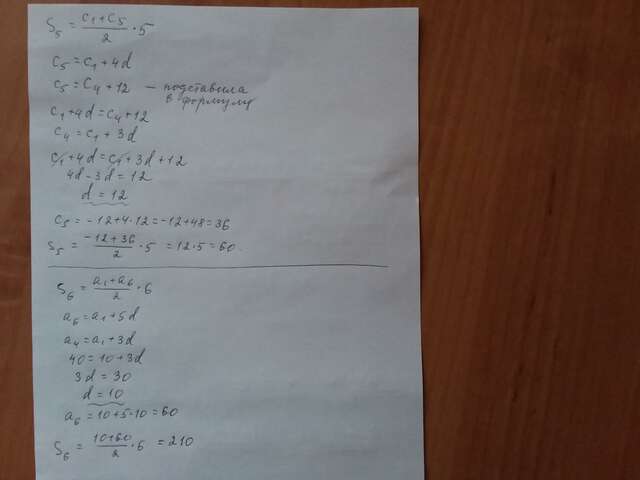 S₅ = (c₁+c₅)/2 · 5
c₅ = c₁ + 4d
c₅ = c₄ + 12 — подставила
в формулу
c₁ + 4d = c₄ + 12
c₄ = c₁ + 3d
c₁ + 4d = c₁ + 3d + 12
4d - 3d = 12
d = 12
c₅ = -12 + 4·12 = -12 + 48 = 36
S₅ = (-12+36)/2 · 5 = 12·5 = 60
S₆ = (a₁+a₆)/2 · 6
a₆ = a₁ + 5d
a₄ = a₁ + 3d
40 = 10 + 3d
3d = 30
d = 10
a₆ = 10 + 5·10 = 60
S₆ = (10+60)/2 · 6 = 210